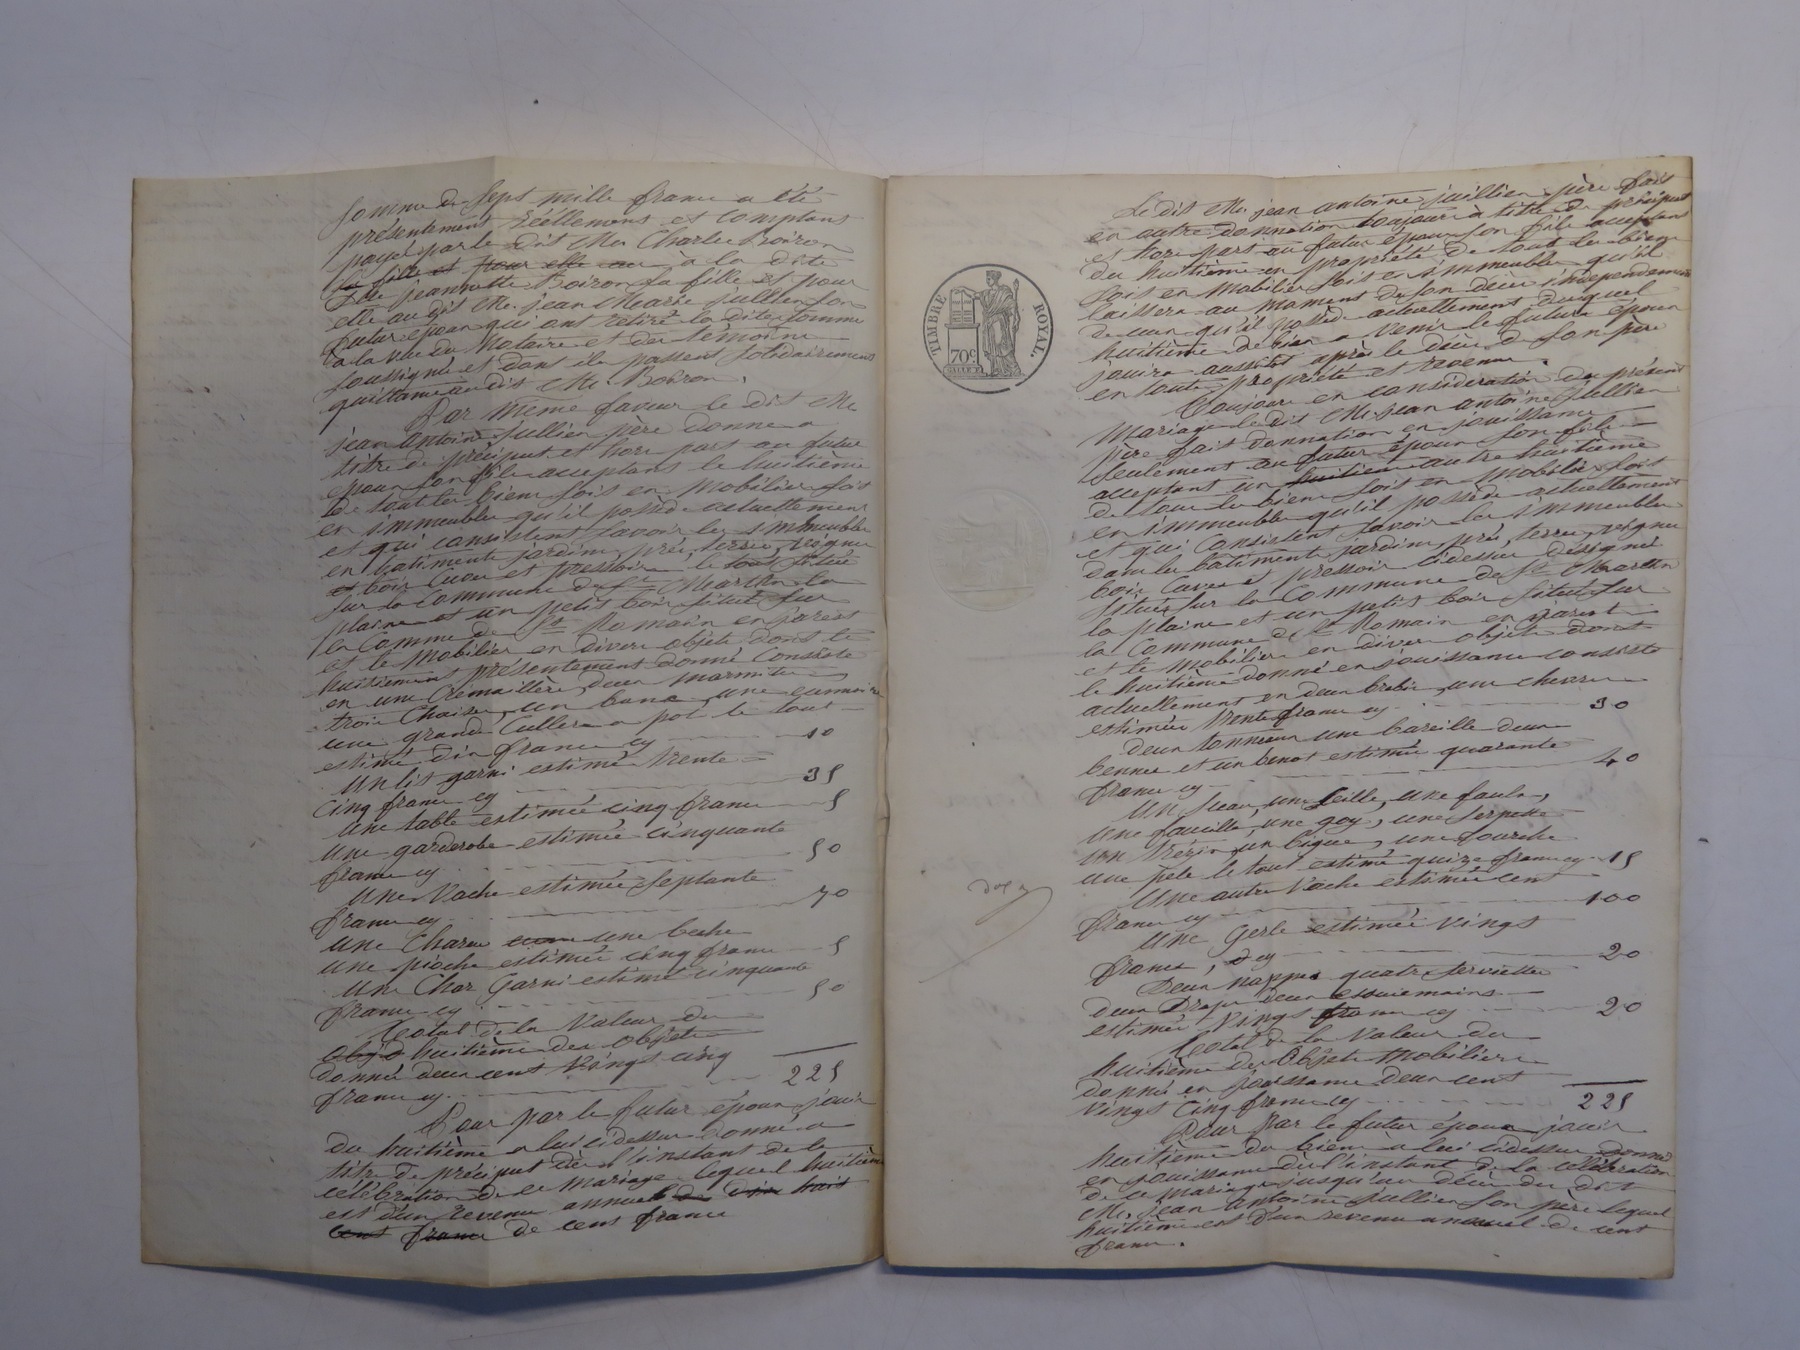 Somme de Sept mille francs a été
présentement réellement et comptant
payé par le dit Mr Charles Boiron
sa fille et pour elle au à la dite
Dlle jeannette Boiron sa fille et pour
elle au dit Mr. jean Marie jullien son
futur époux qui ont retiré la dite somme
à la vue du Notaire et des témoins
soussignés et dont ils passent solidairement
quittance au dit Mr. Boiron.
Par même faveur le dit Mr
jean antoine Jullien père donne a
titre de préciput et hors part au futur
époux son fils acceptant le huitième
de tout les biens soit en Mobilier soit
en immeubles qu'il possède actuellement
et qui consistent savoir les immeubles
en batiments jardins, prés, terres, vignes
et bois Cuves et pressoirs le tout situé
sur la Commune de St Martin la
plaine et un petit bois situé sur
la Comme de St Romain en jarest
et le Mobilier en divers objets dont le
huitième présentement donné Consiste
en une Cremaillère, deux marmites
trois Chaises, un banc, une
une grande Cullière a pot le tout
estimé dix francs cy 10
Un lit garni estimé trente =
cinq francs cy 35
Une table estimée cinq francs 5
Une garderobe estimée cinquante
francs cy 50
Une Vache estimée Septante
francs cy 70
Une Charue une beche
une pioche estimée cinq francs 5
Un Char Garni estimé cinquante
francs cy 50
Total de la Valeur du
objs huitième des objets
donné deux cent Vingt cinq
francs cy 225
Pour par le futur époux jouir
du huitième a lui cidessus donné a
titre de préciput dès l'instant de la
célébration de ce mariage lequel huitième
est d'un revenu annuel de dix huit
cent francs de cent francs
TIMBRE ROYAL.
70c
Le dit Mr. jean antoine jullien père fait
en outre donnation toujours à titre de préciput
et hors part au futur époux son fils acceptant
du huitième en propriété de tout les biens
soit en Mobilier soit en immeubles qu'il
laissera au moment de son décès indépendamment
de ceux qu'il possède actuellement duquel
huitième de biens a venir le futur époux
jouira aussitôt après le décès de son père
en toute propriété et revenus.
Toujours en considération du présent
Mariage le dit Mr. jean antoine Jullien
père fait donnation en jouissance
seulement au futur époux son fils =
acceptant un huitième autre huitième
de tous les biens soit en Mobilier soit
en immeubles qu'il possède actuellement
et qui Consistent savoir les immeubles
dans les batiments jardins prés, terres, vignes
bois Cuves et pressoir cidessus désigné
situés sur la Commune de St Martin
la plaine et un petit bois situé sur
la Commune de St Romain en jarest
et le Mobilier en divers objets dont
le huitième donné en jouissance consiste
actuellement en deux brebis, une chevre
estimées trente francs cy 30
deux tonneaux une bareille deux
bennes et un benot estimés quarante
francs cy 40
Un Seau, une Seille, une faulx,
une faucille, une goy, une Serpette
un bigue, une fourche
une pele le tout estimé quize francs cy 15
Une autre Vache estimée cent
francs cy 100
Une Gerle estimée vingt
francs, cy 20
Deux nappes quatre serviettes
deux Draps deux essuiemains
estimés Vingt francs cy 20
Total de la Valeur du
huitième des Objets Mobiliers
donné en jouissance deux cent
vingt Cinq francs cy 225
Pour Par le futur époux jouir
huitième des biens a lui cidessus donné
en jouissance dès l'instant de la célébration
de ce mariage jusqu'au décès du dit
Mr. jean antoine jullien son père lequel
huitième est d'un revenu annuel de cent
francs.